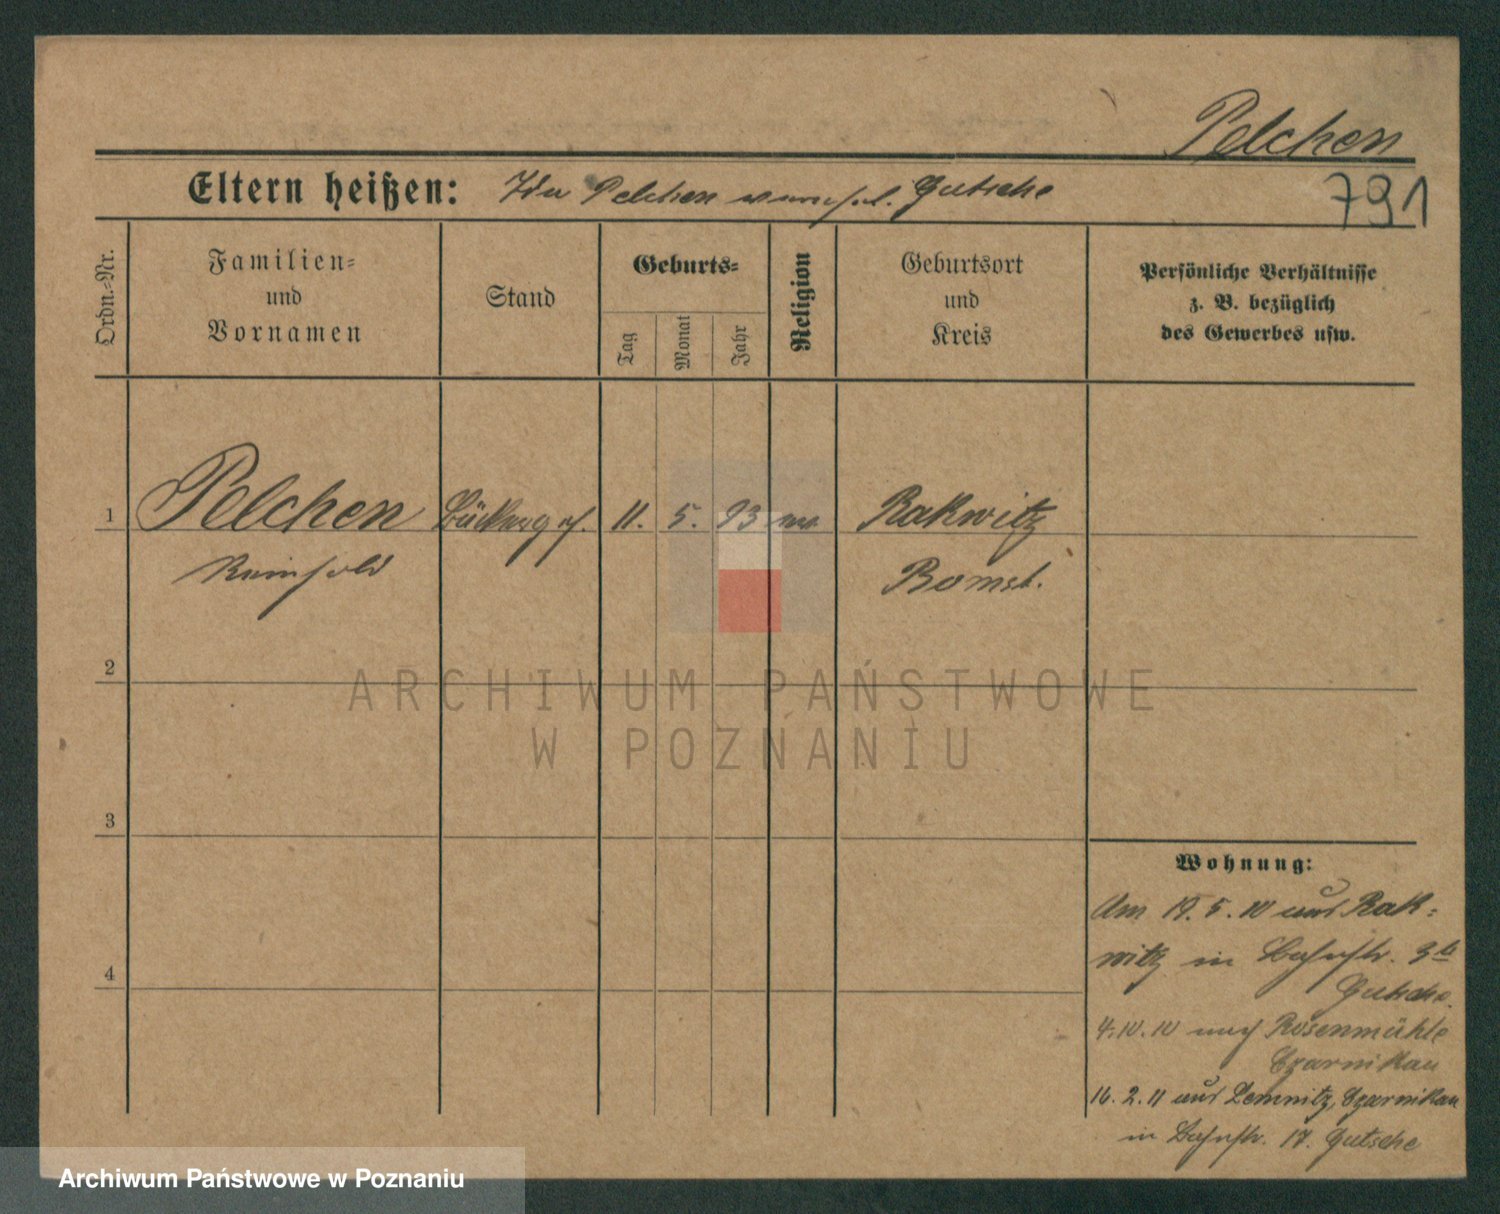 Pelchen
791
Eltern heißen: Ida Pelchen verehel. Gutsche
Ordn.-Nr.
Familien-
und
Vornamen
Stand
Geburts-
Tag
Monat
Jahr
Religion
Geburtsort
und
Kreis
Persönliche Verhältnisse
z. B. bezüglich
des Gewerbes usw.
1 Pelchen Bäckerges. 11. 5. 93 ev. Rakwitz
Reinhold Bomst.
2
3
4
Wohnung:
Am 19. 5. 10 aus Rak-
witz in Bahnstr.
Gutsche.
4.10.10 nach Rosenmühle
Czarnikau
16. 2. 11 aus Lemnitz, Czarnikau
in Bahnstr. 17. Gutsche
ARCHIWUM PAŃSTWOWE
W POZNANIU
Archiwum Państwowe w Poznaniu